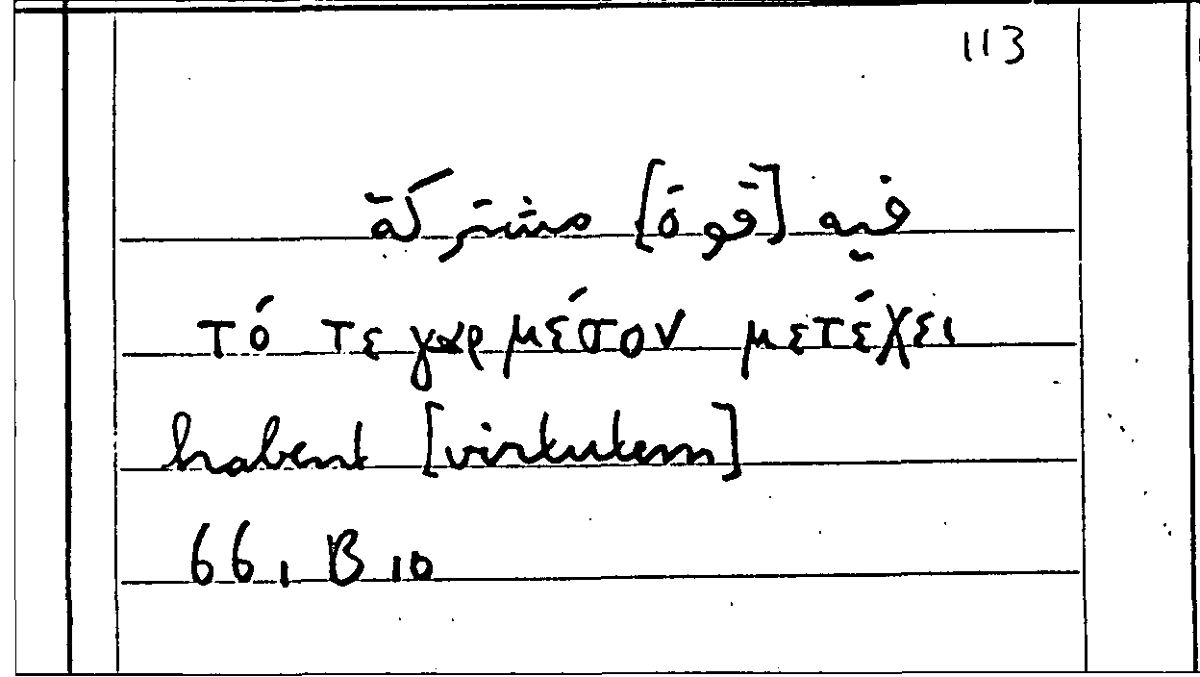 113
فيه [قوة] مشتركة
τό τε γαρ μέσον μετέχει
habent [virtutem]
661 B 10